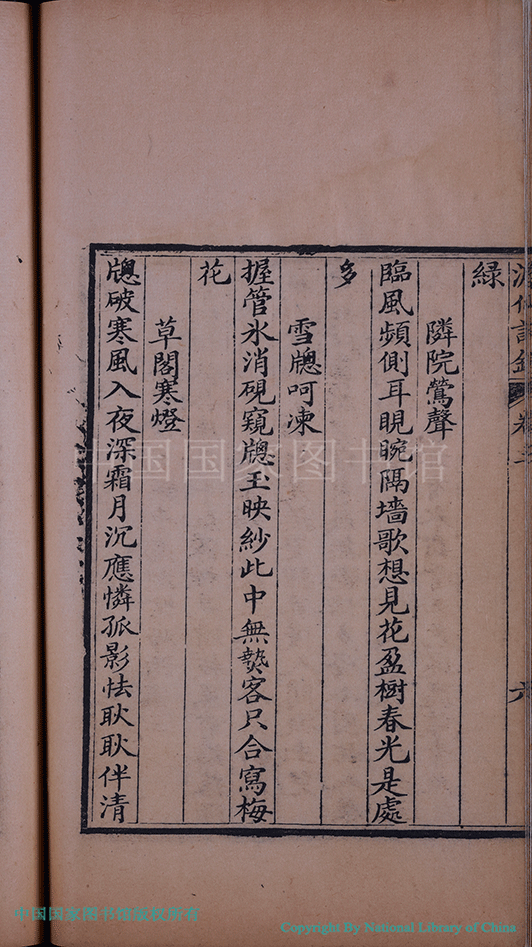 緑
隣院鶯聲
臨風頻側耳睍睆隔墻歌想見花盈樹春光是處
多
雪牕呵凍
握管氷消硯窺牕玉映紗此中無𤍠客只合寫梅
花
草閣寒燈
牕破寒風入夜深霜月沉應憐孤影怯耿耿伴清
中国国家图书馆
中国国家图书馆版权所有
Copyright By National Library of China